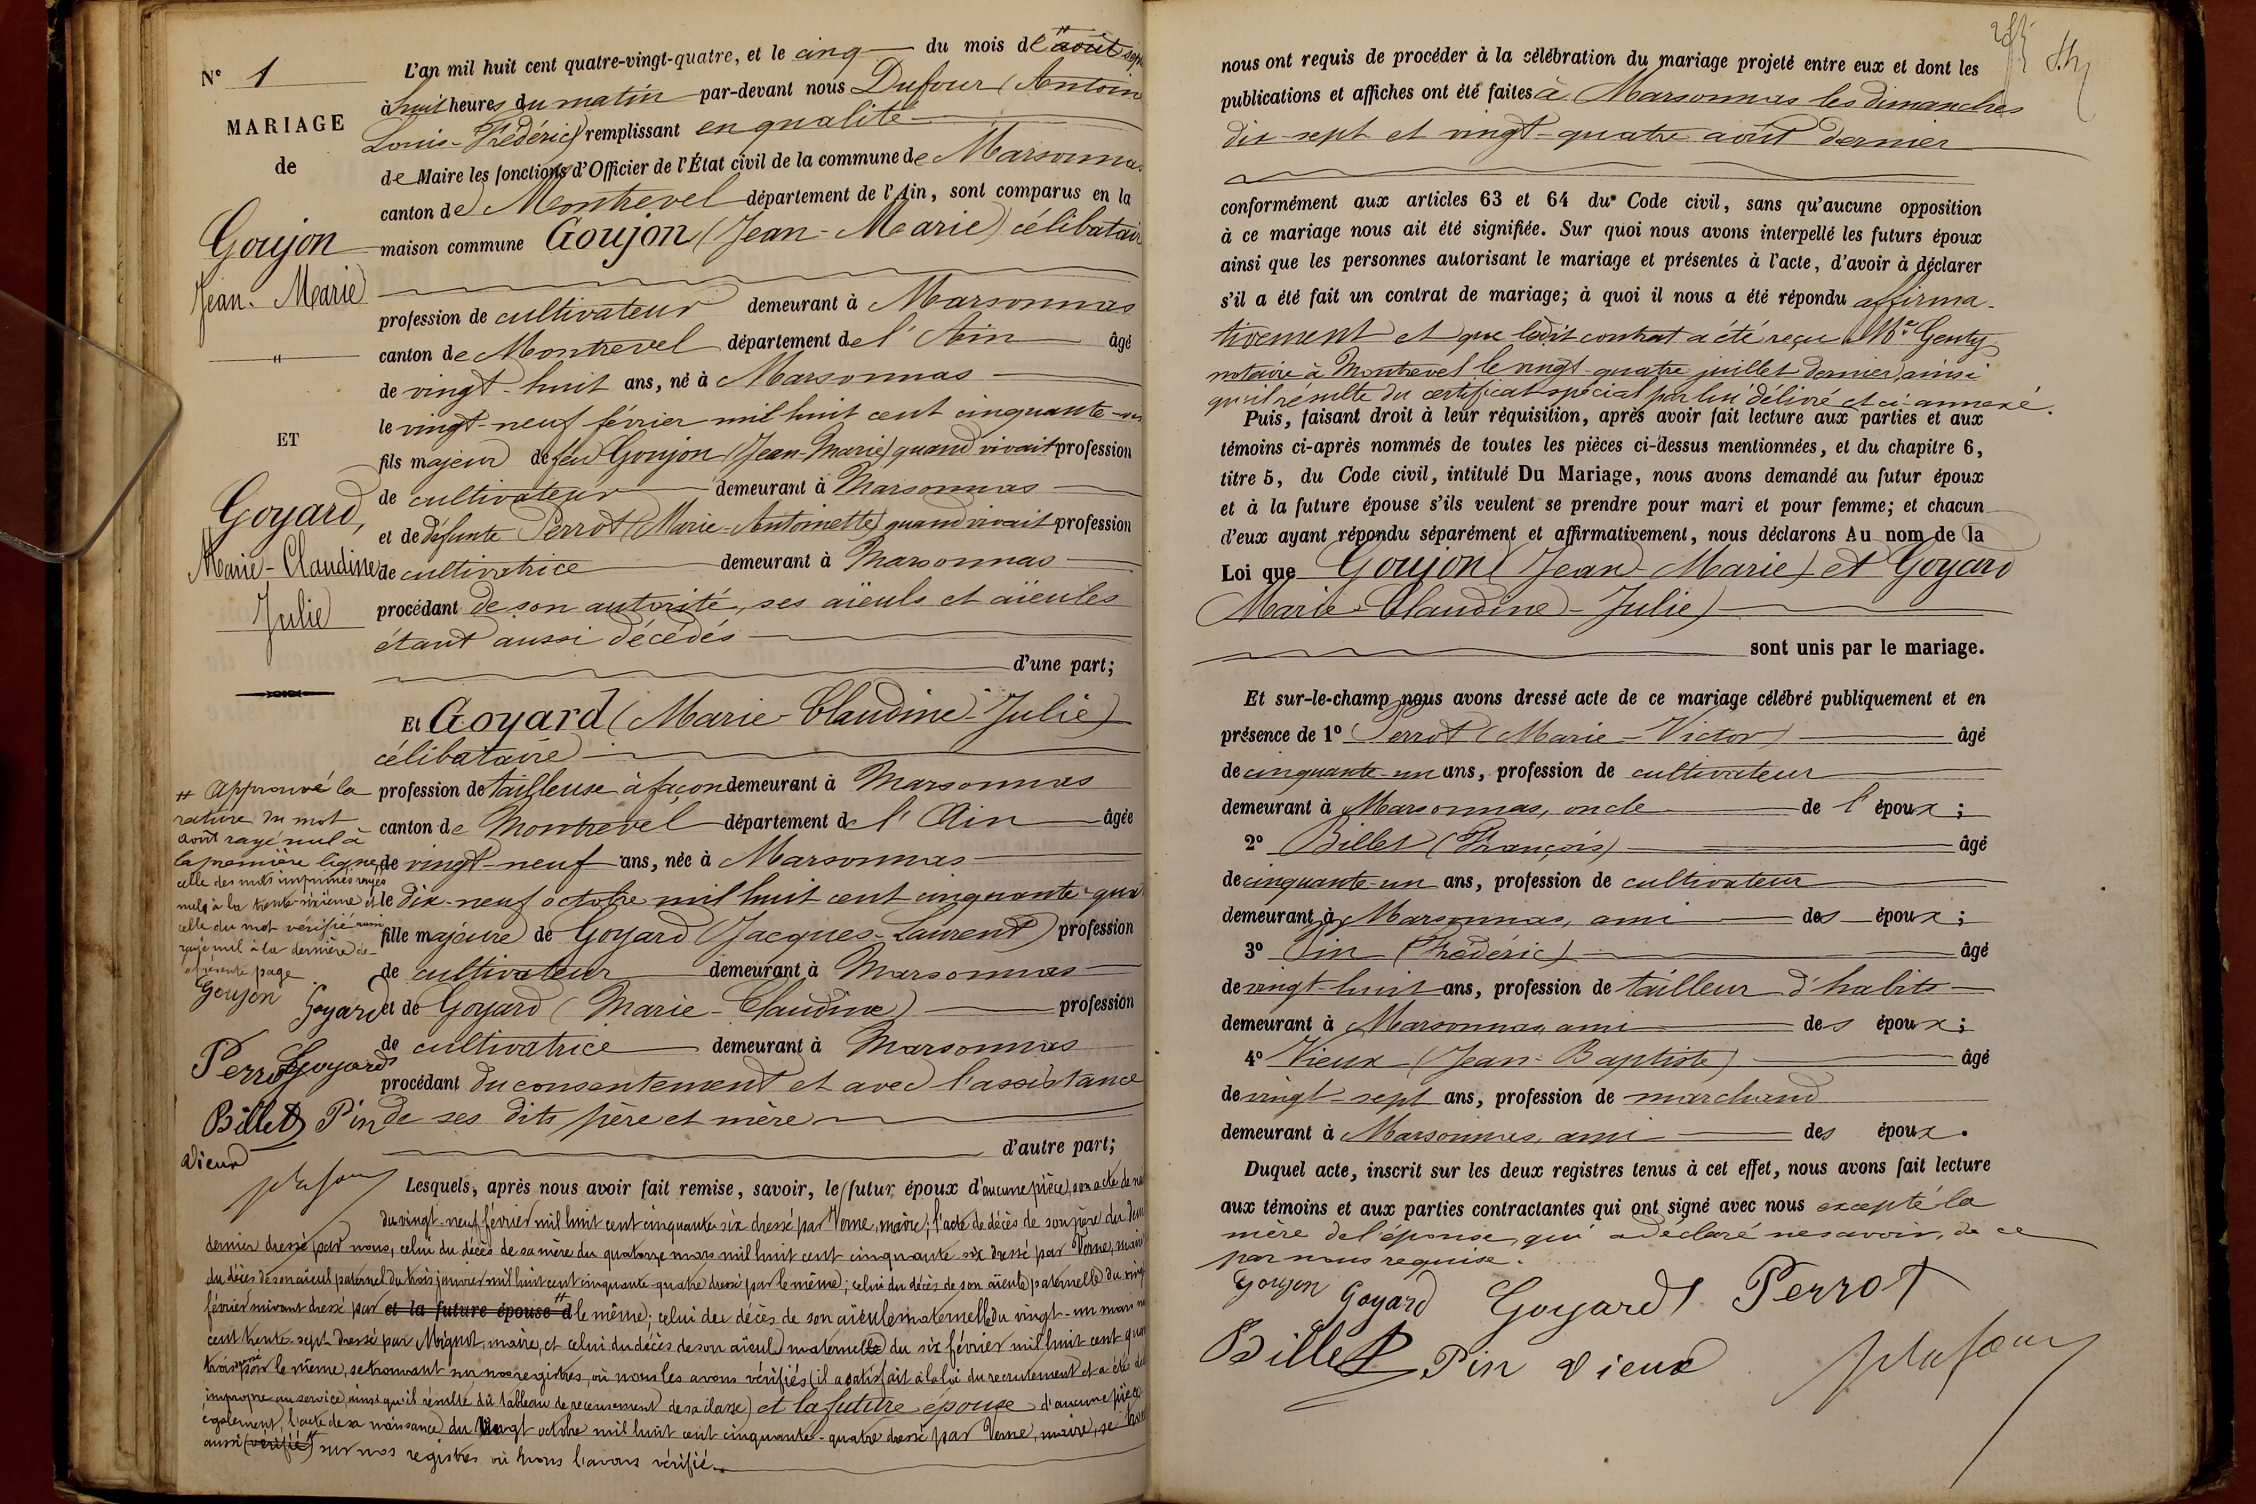 N° 1
MARIAGE
de
Goujon
Jean-Marie
ET
Goyard,
Marie-Claudine
Julie
L'an mil huit cent quatre-vingt-quatre, et le cinq du mois de août sep
à huit heures du matin par-devant nous Dufour (Antoin
Louis-Frédéric) remplissant en qualité
de Maire les fonctions d'Officier de l'État civil de la commune de Marsonnas
canton de Montrevel département de l'Ain, sont comparus en la
maison commune Goujon (Jean-Marie) célibatair
profession de cultivateur demeurant à Marsonnas
canton de Montrevel département de l'Ain âgé
de vingt-huit ans, né à Marsonnas
le vingt-neuf février mil huit cent cinquante-six
fils majeur de feu Goujon (Jean-Marie) quand vivait profession
de cultivateur demeurant à Marsonnas
et de défunte Perrot (Marie-Antoinette) quand vivait profession
de cultivatrice demeurant à Marsonnas
procédant de son autorité, ses aïeuls et aïeules
étant aussi décédés
d'une part;
Et Goyard (Marie-Claudine-Julie)
célibataire
profession de tailleuse à façon demeurant à Marsonnas
canton de Montrevel département de l'Ain âgée
de vingt-neuf ans, née à Marsonnas
le dix-neuf octobre mil huit cent cinquante-qua
fille majeure de Goyard (Jacques-Laurent) profession
de cultivateur demeurant à Marsonnas
et de Goyard (Marie-Claudine) profession
de cultivatrice demeurant à Marsonnas
procédant du consentement et avec l'assistance
de ses dits père et mère
d'autre part;
Lesquels, après nous avoir fait remise, savoir, le futur époux d'aucune pièce, son acte de nai
du vingt-neuf février mil huit cent cinquante six dressé par Verne, maire; l'acte de décès de son père du
dernier dressé par nous, celui du décès de sa mère du quatorze mars mil huit cent cinquante six dressé par Verne, maire
du décès de son aïeul paternel du trois janvier mil huit cent cinquante-quatre dressé par le même; celui du décès de son aïeule paternelle du vingt
février suivant dressé par et la future épouse d le même; celui du décès de son aïeule maternelle du vingt-un mars m
cent trente-sept dressé par Mignot, maire, et celui du décès de son aïeul maternel du six février mil huit cent quar
trois dressé par le même, se trouvant sur nos registres, où nous les avons vérifiés (il a satisfait à la loi du recrutement et a été dé
impropre au service, ainsi qu'il résulte du tableau de recensement de sa classe) et la future épouse d'aucune pièce
également, l'acte de sa naissance du vingt octobre mil huit cent cinquante-quatre dressé par Verne, maire, se trouv
aussi (vérifié) sur nos registres où nous l'avons vérifié.
# Approuvé la
rature du mot
août rayé nul à
la première ligne,
celle des mots imprimés rayés
nuls à la trente-sixième et
celle du mot vérifié aussi
rayé nul à la dernière de
la présente page
Goujon
Goyard
Perrot Goyard
Billet Pin
Vieux
nous ont requis de procéder à la célébration du mariage projeté entre eux et dont les
publications et affiches ont été faites à Marsonnas les dimanches
dix-sept et vingt-quatre août dernier
conformément aux articles 63 et 64 du Code civil, sans qu'aucune opposition
à ce mariage nous ait été signifiée. Sur quoi nous avons interpellé les futurs époux
ainsi que les personnes autorisant le mariage et présentes à l'acte, d'avoir à déclarer
s'il a été fait un contrat de mariage; à quoi il nous a été répondu affirma-
tivement et que ledit contrat a été reçu Me Genty
notaire à Montrevel le vingt-quatre juillet dernier, ainsi
qu'il résulte du certificat spécial par lui délivré et ci-annexé.
Puis, faisant droit à leur réquisition, après avoir fait lecture aux parties et aux
témoins ci-après nommés de toutes les pièces ci-dessus mentionnées, et du chapitre 6,
titre 5, du Code civil, intitulé Du Mariage, nous avons demandé au futur époux
et à la future épouse s'ils veulent se prendre pour mari et pour femme; et chacun
d'eux ayant répondu séparément et affirmativement, nous déclarons Au nom de la
Loi que Goujon (Jean-Marie) et Goyard
Marie-Claudine-Julie)
sont unis par le mariage.
Et sur-le-champ nous avons dressé acte de ce mariage célébré publiquement et en
présence de 1° Perrot (Marie-Victor) âgé
de cinquante-un ans, profession de cultivateur
demeurant à Marsonnas, oncle de l'époux;
2° Billet (François) âgé
de cinquante-un ans, profession de cultivateur
demeurant à Marsonnas, ami des époux;
3° Pin (Frédéric) âgé
de vingt-huit ans, profession de tailleur d'habits
demeurant à Marsonnas, ami des époux;
4° Vieux (Jean-Baptiste) âgé
de vingt-sept ans, profession de marchand
demeurant à Marsonnas, ami des époux.
Duquel acte, inscrit sur les deux registres tenus à cet effet, nous avons fait lecture
aux témoins et aux parties contractantes qui ont signé avec nous excepté la
mère de l'épouse, qui a déclaré ne savoir, de ce
par nous requise.
Goujon Goyard Goyard Perrot
Billet Pin Vieux